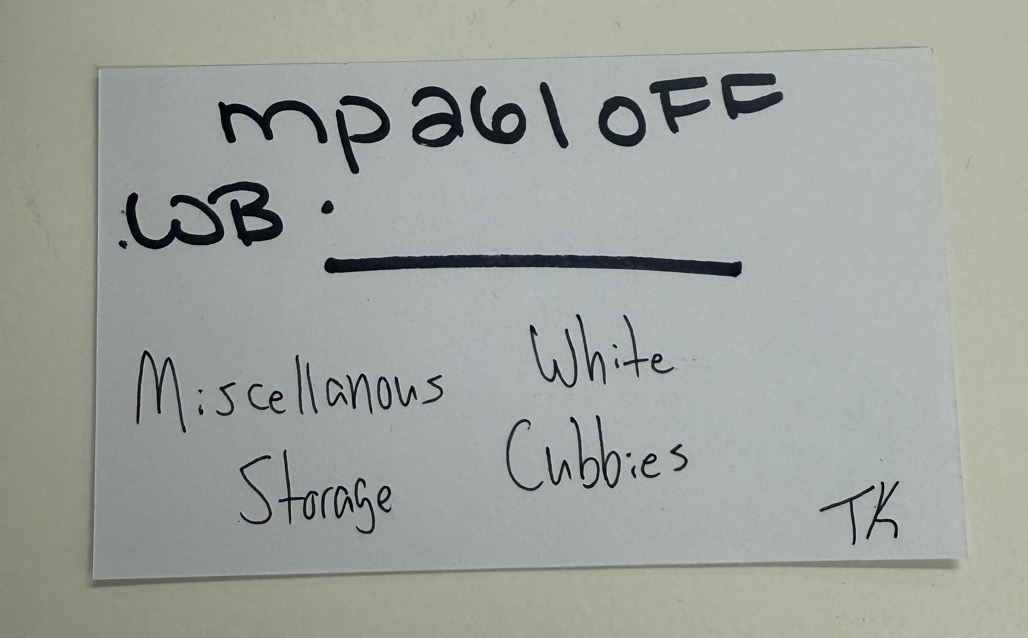 mp261 OFF
.WB.
Miscellanous Storage
White Cubbies
TK